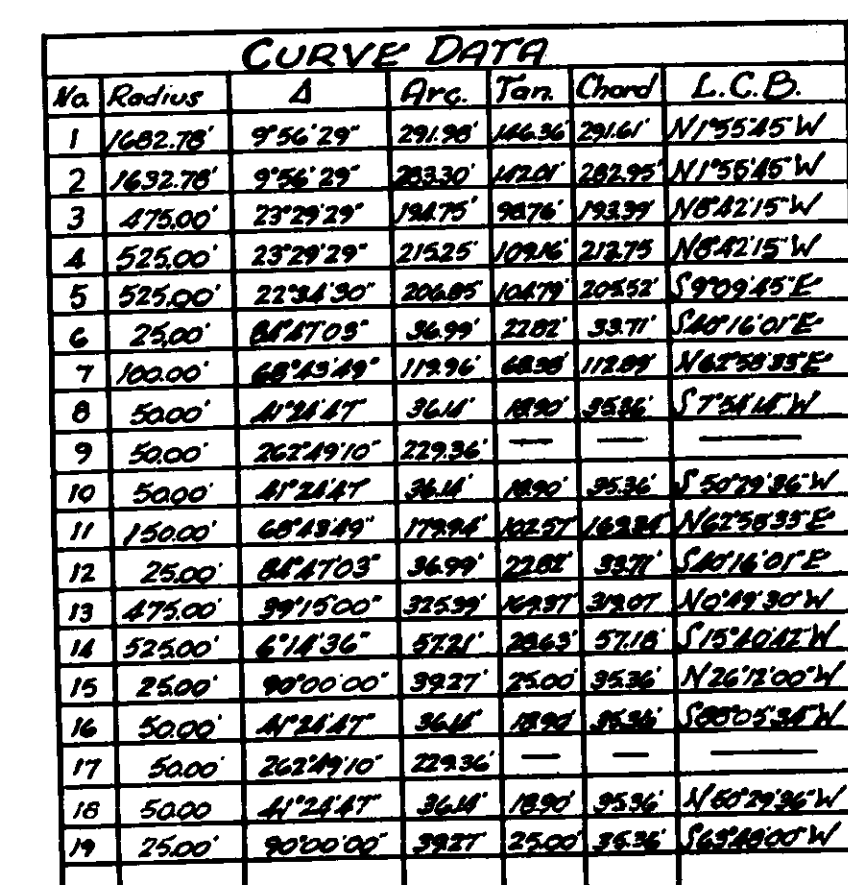 CURVE DATA
No. Radius Δ Arc. Tan. Chord L.C.B.
1 1682.78' 9°56'29" 291.98' 146.36' 291.61' N1°55'45"W
2 1632.78' 9°56'29" 283.30' 142.01' 282.95' N1°55'45"W
3 475.00' 23°29'29" 194.75' 98.76' 193.39' N8°42'15"W
4 525.00' 23°29'29" 215.25' 109.16' 212.75 N8°42'15"W
5 525.00' 22°34'30" 206.85' 104.79' 205.52' S9°09'45"E
6 25.00' 84°47'03" 36.99' 22.82' 33.71' S40°16'01"E
7 100.00' 68°43'49" 119.96' 68.38' 112.89' N62°58'33"E
8 50.00' 41°24'47" 36.14' 18.90' 35.36' S7°54'14"W
9 50.00' 262°49'10" 229.36' — — —
10 50.00' 41°24'47" 36.14' 18.90' 35.36' S50°29'36"W
11 150.00' 68°43'49" 179.94' 102.57' 169.34' N62°58'33"E
12 25.00' 84°47'03" 36.99' 22.82' 33.71' S40°16'01"E
13 475.00' 39°15'00" 325.39' 169.37' 319.07 N0°49'30"W
14 525.00' 6°14'36" 57.21' 28.63' 57.18' S15°40'42"W
15 25.00' 90°00'00" 39.27' 25.00' 35.36' N26°12'00"W
16 50.00' 41°24'47" 36.14' 18.90' 35.36' S88°05'34"W
17 50.00' 262°49'10" 229.36' — — —
18 50.00 41°24'47" 36.14' 18.90' 35.36' N50°29'36"W
19 25.00' 90°00'00" 39.27 25.00' 35.36' S63°48'00"W